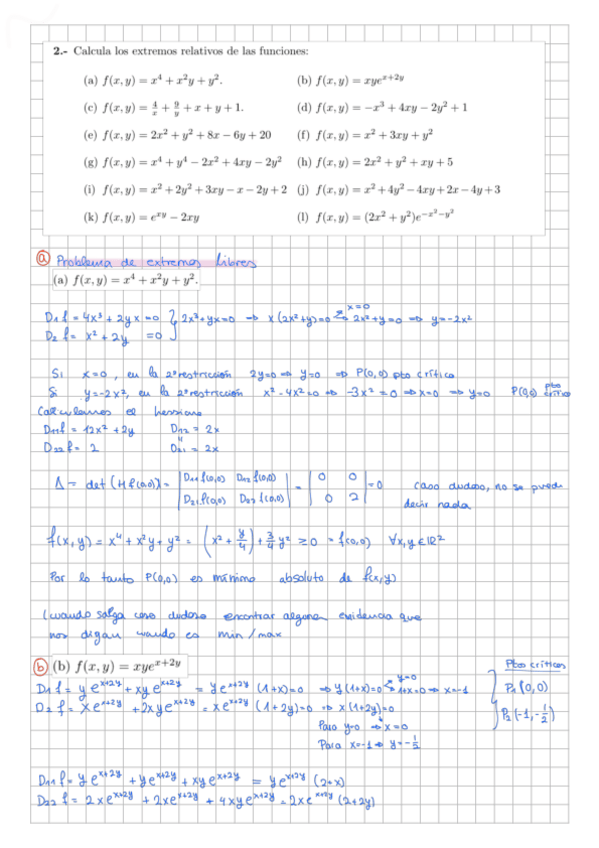 2.- Calcula los extremos relativos de las funciones:
(a) f(x, y) = x⁴ + x²y + y². (b) f(x, y) = xye^(x+2y)
(c) f(x, y) = 4/x + 9/y + x + y + 1. (d) f(x, y) = −x³ + 4xy − 2y² + 1
(e) f(x, y) = 2x² + y² + 8x − 6y + 20 (f) f(x, y) = x² + 3xy + y²
(g) f(x, y) = x⁴ + y⁴ − 2x² + 4xy − 2y² (h) f(x, y) = 2x² + y² + xy + 5
(i) f(x, y) = x² + 2y² + 3xy − x − 2y + 2 (j) f(x, y) = x² + 4y² − 4xy + 2x − 4y + 3
(k) f(x, y) = e^(xy) − 2xy (l) f(x, y) = (2x² + y²)e^(−x²−y²)
a Problema de extremos libres
(a) f(x, y) = x⁴ + x²y + y².
D₁f = 4x³ + 2yx = 0 } 2x³ + yx = 0 ⇒ x(2x² + y) = 0 x=0 2x² + y = 0 ⇒ y = −2x²
D₂f = x² + 2y = 0
Si x = 0, en la 2ª restricción 2y = 0 ⇒ y = 0 ⇒ P(0,0) pto crítico
Si y = −2x², en la 2ª restricción x² − 4x² = 0 ⇒ −3x² = 0 ⇒ x = 0 ⇒ y = 0 P(0,0) pto crítico
Calculamos el hessiano
D₁₁f = 12x² + 2y D₁₂ = 2x
D₂₂f = 2 D₂₁ = 2x
Δ = det(Hf(0,0)) = |D₁₁f(0,0) D₁₂f(0,0)| = |0 0| = 0 caso dudoso, no se puede
|D₂₁f(0,0) D₂₂f(0,0)| |0 2| decir nada
f(x,y) = x⁴ + x²y + y² = (x² + y/4) + 3/4 y² ≥ 0 = f(0,0) ∀x,y ∈ ℝ²
Por lo tanto P(0,0) es mínimo absoluto de f(x,y)
Cuando salga caso dudoso encontrar alguna evidencia que
nos digan cuando es min/max
b (b) f(x, y) = xye^(x+2y)
D₁f = ye^(x+2y) + xye^(x+2y) = ye^(x+2y)(1+x) = 0 ⇒ y(1+x) = 0 y=0 1+x=0 ⇒ x=−1
D₂f = xe^(x+2y) + 2xye^(x+2y) = xe^(x+2y)(1+2y) = 0 ⇒ x(1+2y) = 0
Para y=0 ⇒ x = 0
Para x=−1 ⇒ y = −1/2
Ptos críticos
P₁(0,0)
P₂(−1, −1/2)
D₁₁f = ye^(x+2y) + ye^(x+2y) + xye^(x+2y) = ye^(x+2y)(2+x)
D₂₂f = 2xe^(x+2y) + 2xe^(x+2y) + 4xye^(x+2y) = 2xe^(x+2y)(2+2y)